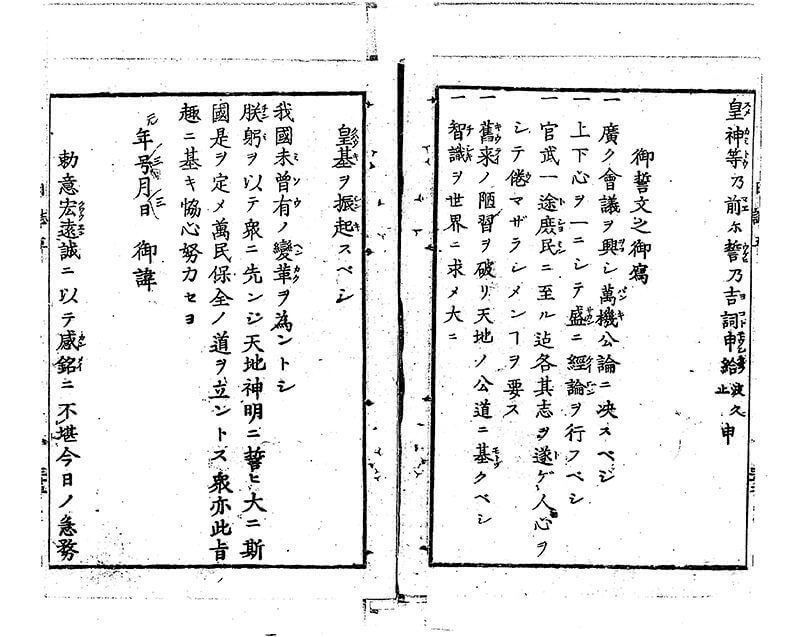 皇神等乃前尓誓乃吉詞申給波久止申
御誓文之御寫
一 廣ク會議ヲ興シ萬機公論ニ决スベシ
一 上下心ヲ一ニシテ盛ニ經論ヲ行フベシ
一 官武一途庶民ニ至ル迠各其志ヲ遂ゲ人心ヲ
シテ倦マザラシメンヿヲ要ス
一 舊来ノ陋習ヲ破リ天地ノ公道ニ基クベシ
一 智識ヲ世界ニ求メ大ニ
皇基ヲ振起スベシ
我國未曾有ノ變革ヲ為ントシ
朕躬ヲ以テ衆ニ先ンジ天地神明ニ誓ヒ大ニ斯
國是ヲ定メ萬民保全ノ道ヲ立ントス衆亦此旨
趣ニ基キ恊心努力セヨ
年号月日 御諱
勅意宏遠誠ニ以テ感銘ニ不堪今日ノ急務